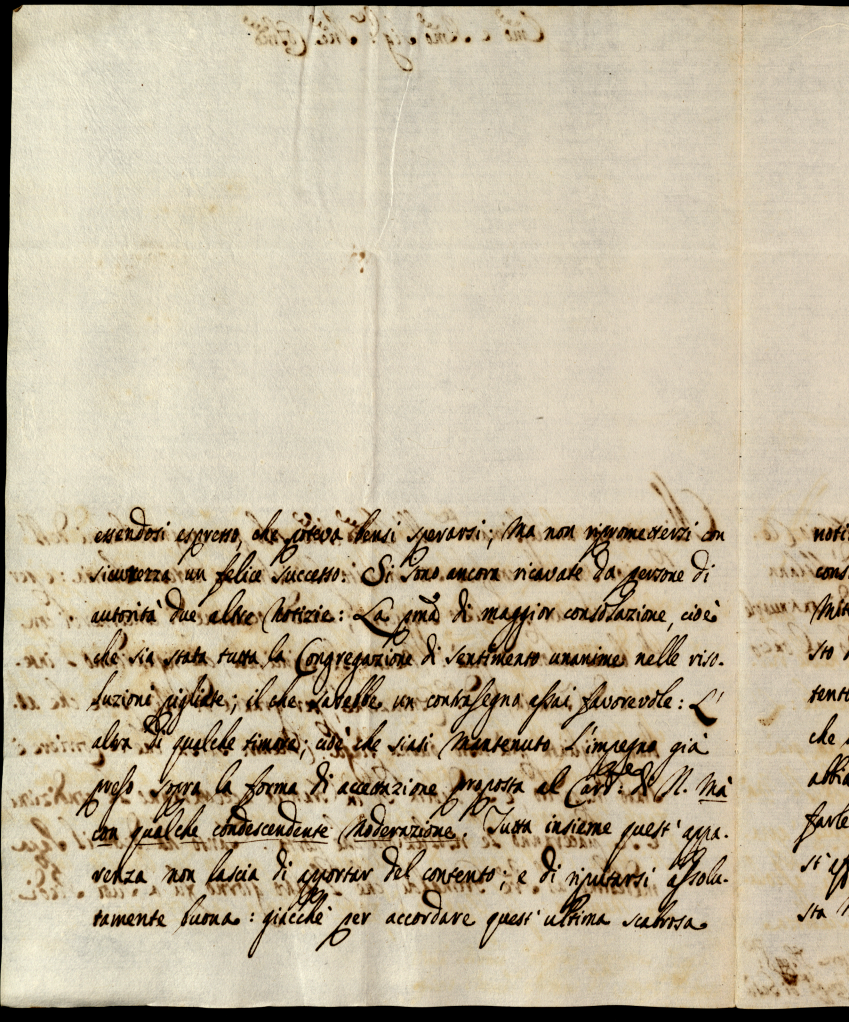 essendosi espresso, che poteva bensi sperarsi; Ma non ripromettersi con
sicurezza un felice successo: Si sono ancora ricavate da persone di
autorità due altre Notizie: La pma di maggior consolazione, cioè
che sia stata tutta la Congregazione di sentimento unanime nelle riso-
luzioni pigliate; il che sarebbe un contrasegno assai favorevole: L'
altra di qualche timore; cioè che siasi Mantenuto L'impegno già
preso sopra la forma di accettazione proposta al Card: di N. Mà
con qualche condescendente Moderazione. Tutta insieme quest' appa-
renza non lascia di apportar del contento; e di riputarsi assolu-
tamente buona: giacchè per accordare quest' ultima scabrosa
noti
cons
Mat
sto
tent
che
abbia
farle
st' esp
sta